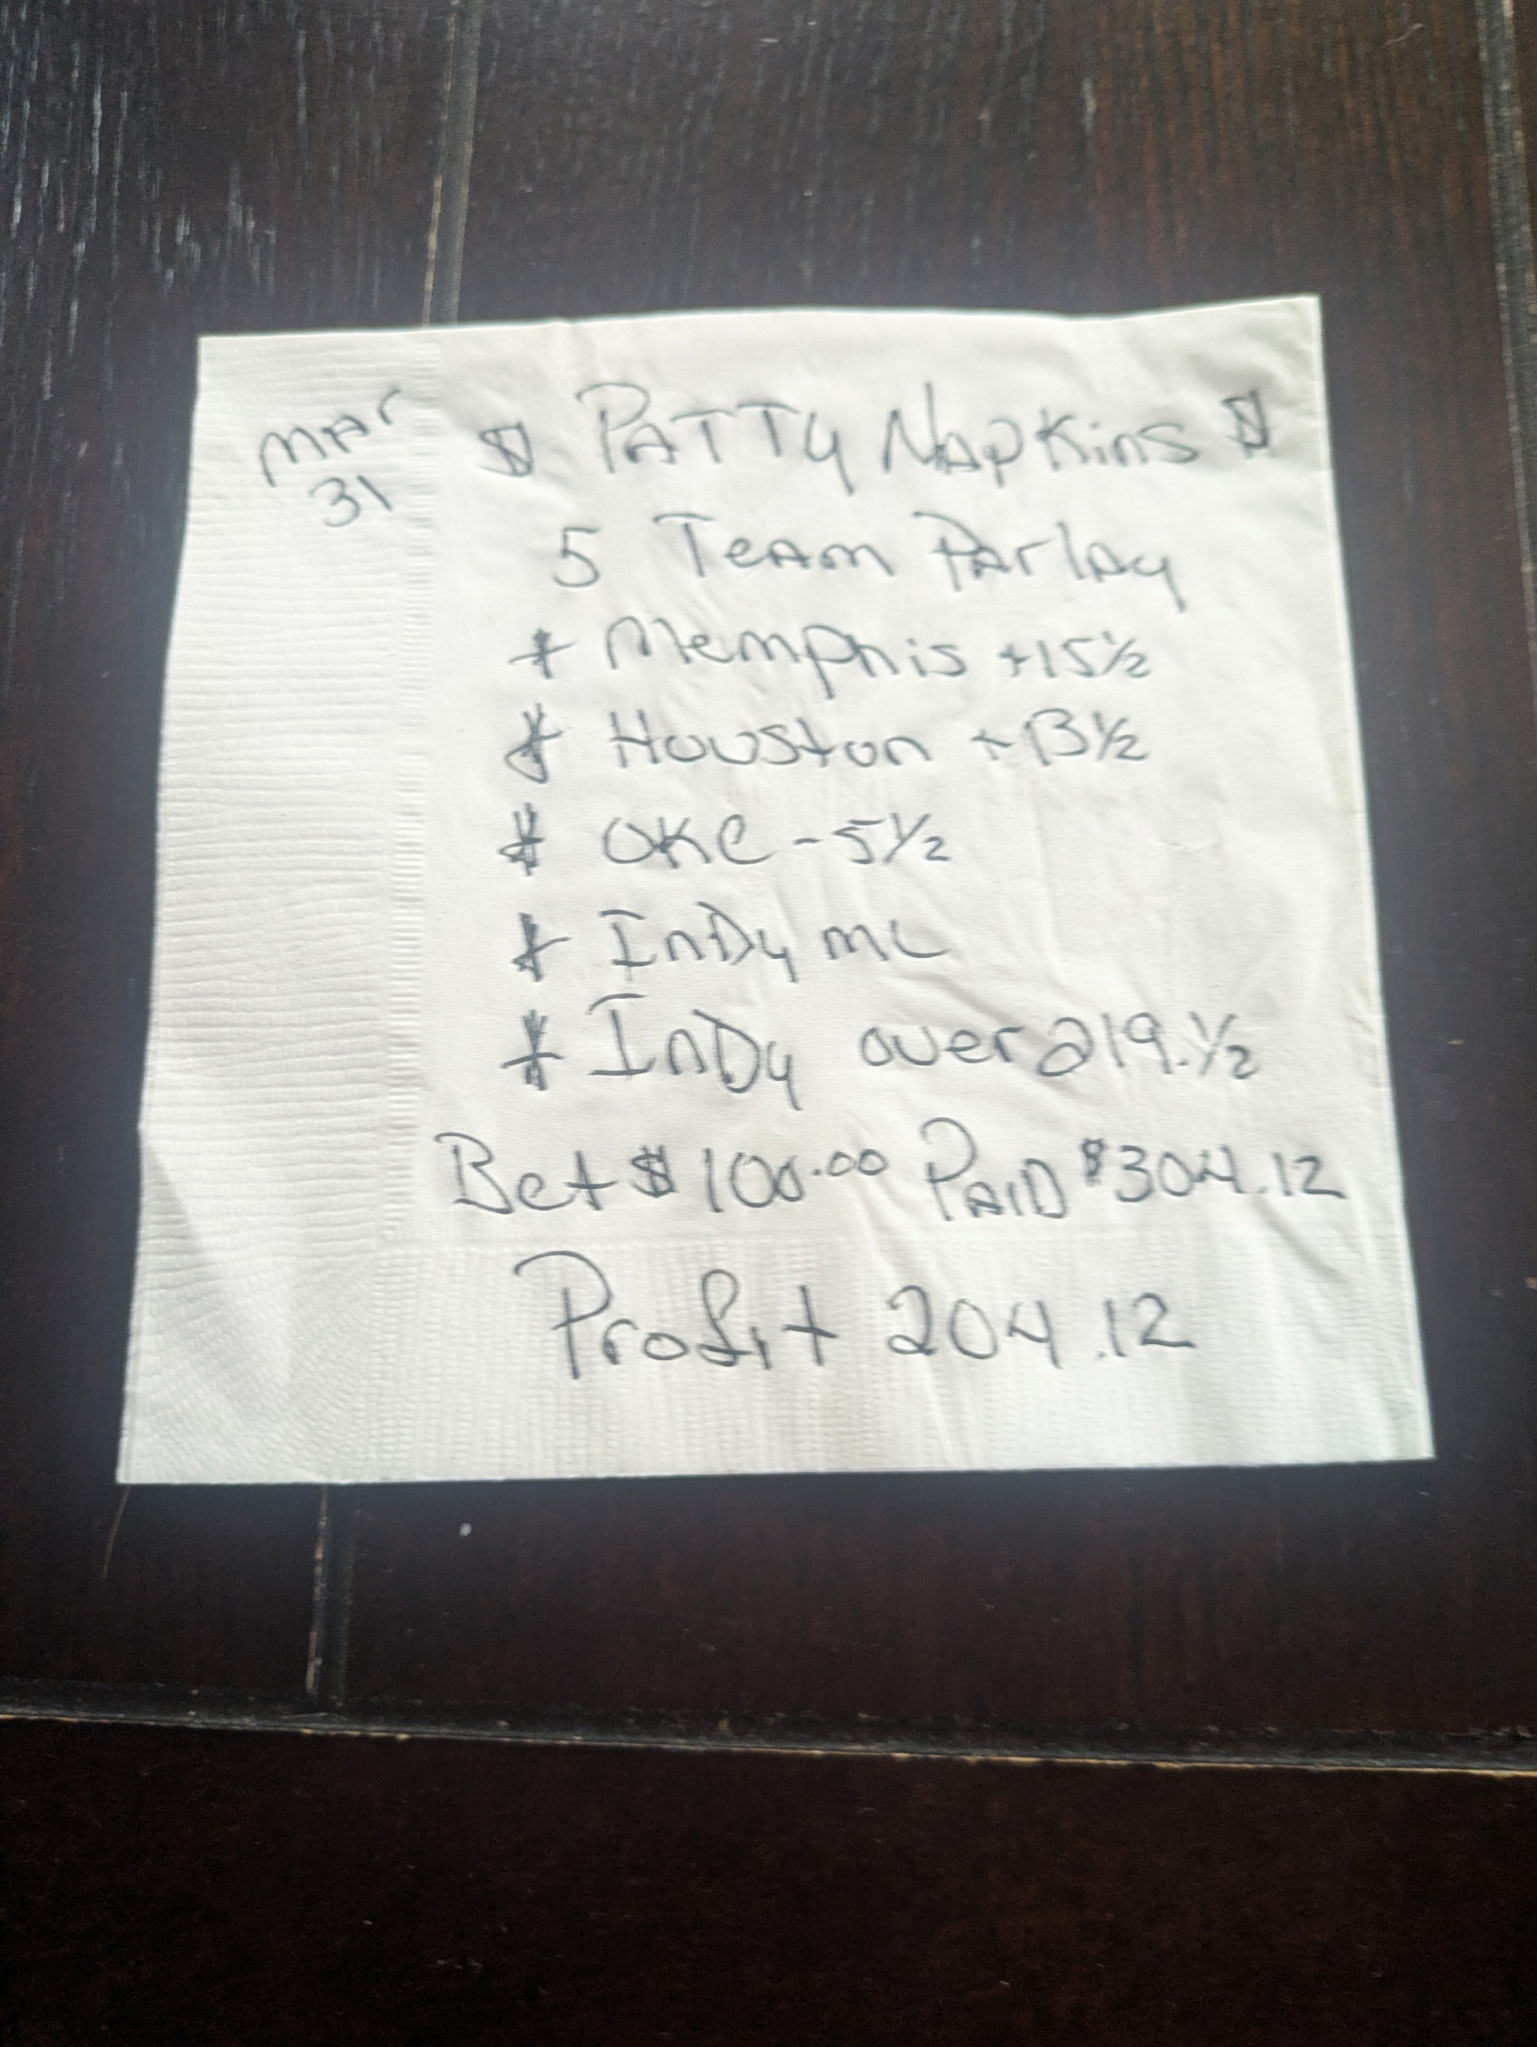 Mar
31
$ PATTY NAPKins $
5 Team Parlay
* Memphis +15½
* Houston +13½
* OKC -5½
* InDy mL
* InDy over 219.½
Bet $100.00 PAID $304.12
Profit 204.12